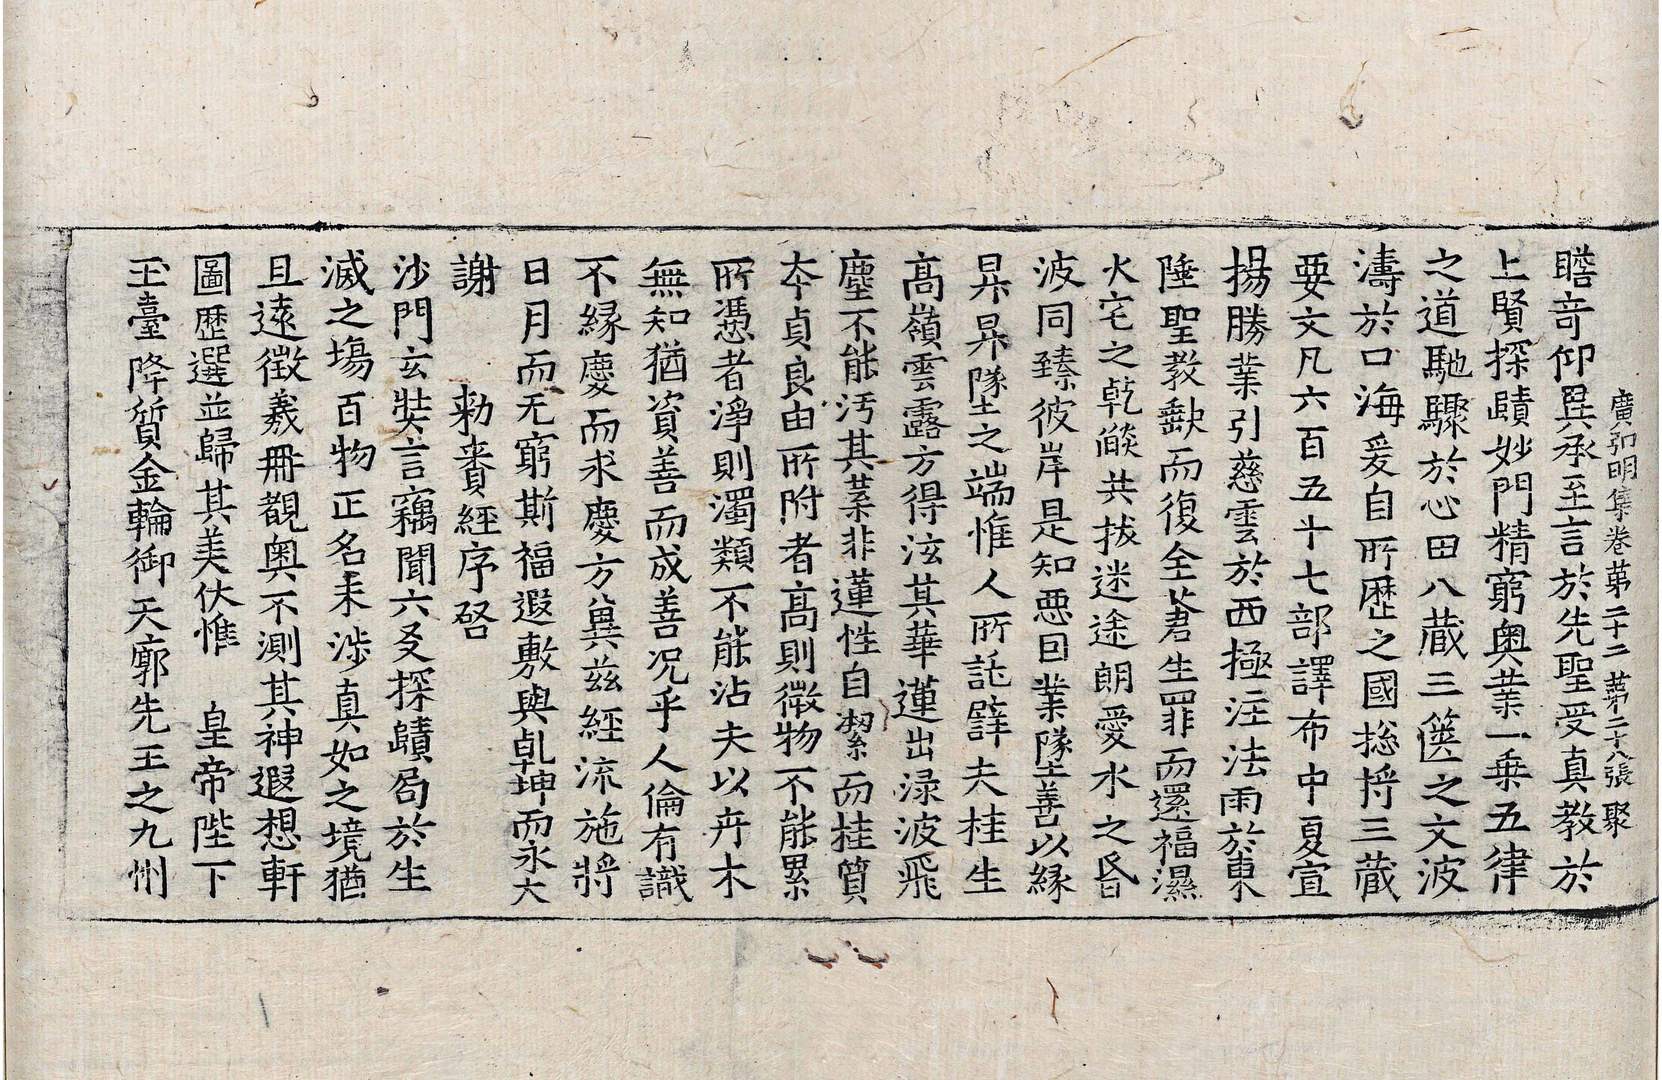 廣弘明集卷苐二十二 苐二十八張 聚
瞻竒仰異承至言於先聖受真教於
上賢探賾妙門精窮奥業一乗五律
之道馳驟於心田八藏三篋之文波
濤於口海爰自所歴之國揔将三藏
要文凡六百五十七部譯布中夏宣
揚勝業引慈雲於西極注法雨於東
陲聖教歖而復全蒼生罪而還福濕
火宅之乾燄共拔迷途朗愛水之昏
波同臻彼岸是知惡因業墜善以縁
昇昇墜之端惟人所託譬夫桂生
髙嶺雲露方得泫其華蓮出渌波飛
塵不能汚其葉非蓮性自潔而桂質
夲貞良由所附者髙則微物不能累
所憑者淨則濁類不能沾夫以卉木
無知猶資善而成善况乎人倫有識
不縁慶而求慶方兾茲經流施將
日月而无窮斯福遐敷與乹坤而永大
謝 勑賚經序啓
沙門玄奘言竊聞六爻探賾局於生
滅之塲百物正名未涉真如之境猶
且遠徵羲冊覩奥不測其神遐想軒
圖歴選並歸其美伏惟 皇帝陛下
玉臺降質金輪御天廓先王之九州